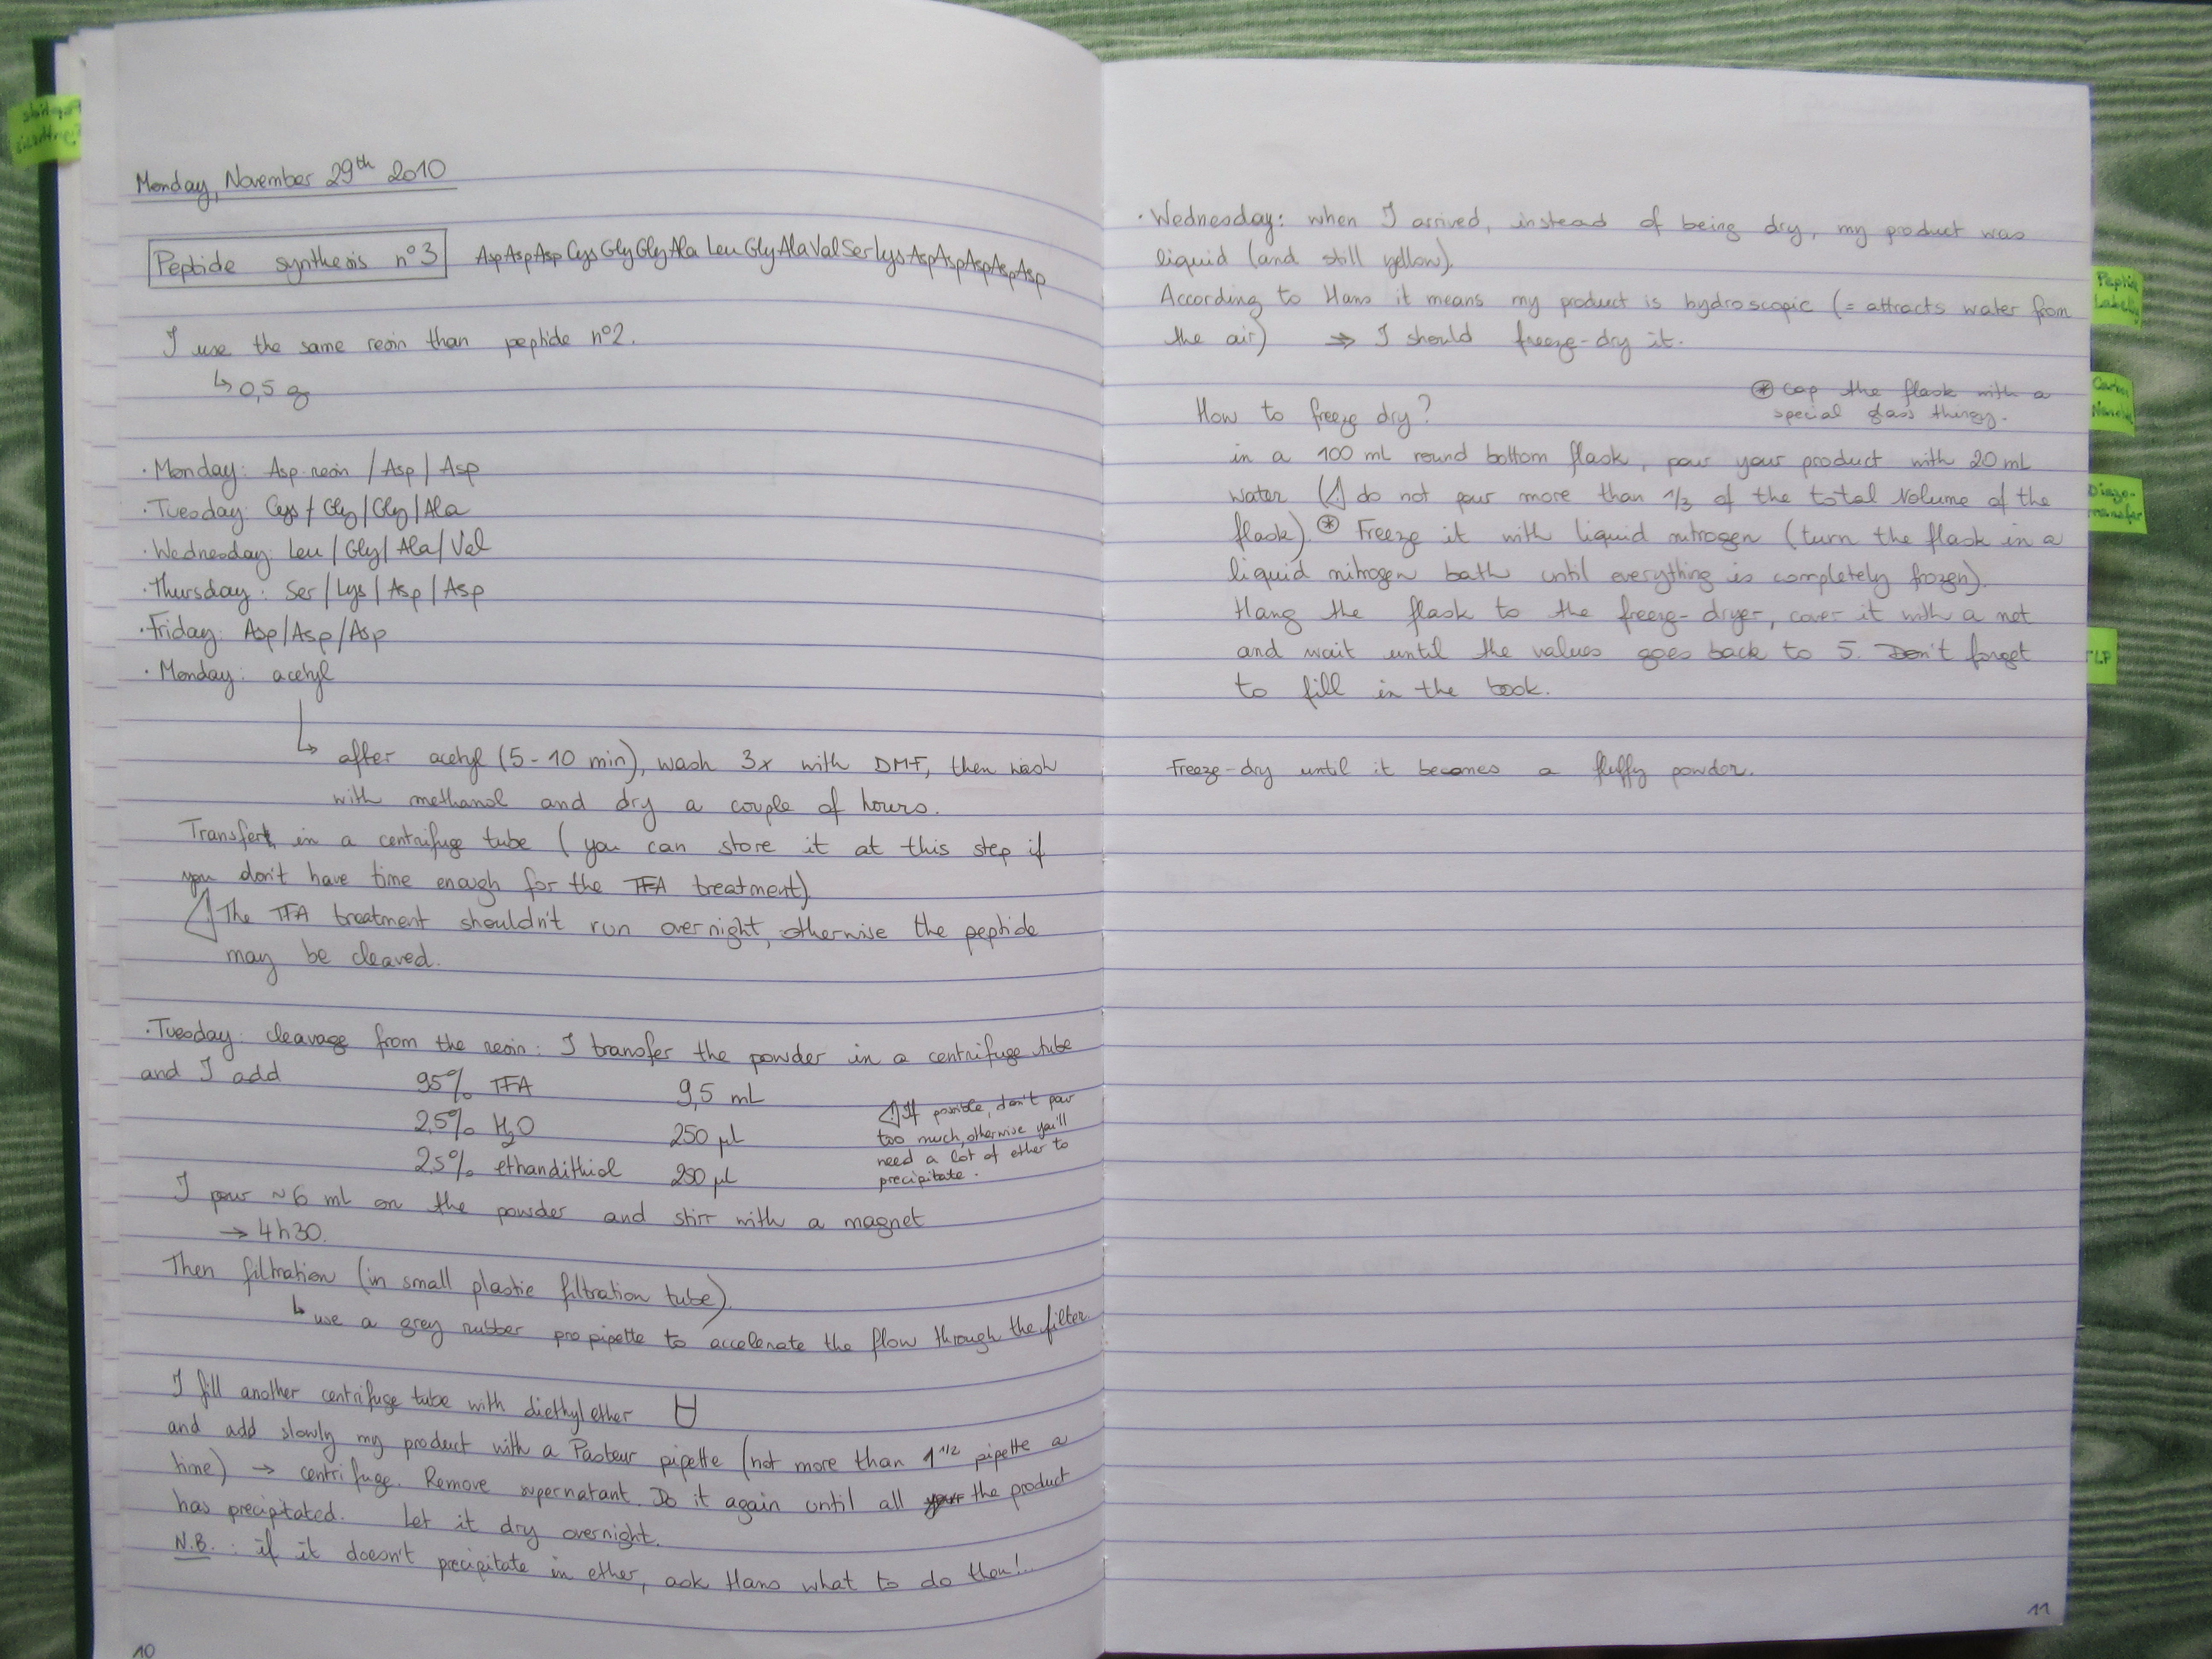 Peptide
Synthesis
Monday, November 29th 2010
Peptide synthesis n°3 AspAspAspCysGlyGlyAlaLeuGlyAlaValSerLysAspAspAspAspAsp
I use the same resin than peptide n°2.
↳ 0,5 g
· Monday: Asp resin / Asp / Asp
· Tuesday: Cys / Gly / Gly / Ala
· Wednesday: Leu / Gly / Ala / Val
· Thursday: Ser / Lys / Asp / Asp
· Friday: Asp / Asp / Asp
· Monday: acetyl
↳ after acetyl (5-10 min), wash 3x with DMF, then wash
with methanol and dry a couple of hours.
Transfert in a centrifuge tube (you can store it at this step if
you don't have time enough for the TFA treatment)
⚠ The TFA treatment shouldn't run overnight, otherwise the peptide
may be cleaved.
· Tuesday: cleavage from the resin: I transfer the powder in a centrifuge tube
and I add 95% TFA 9,5 mL
2,5% H2O 250 µL
2,5% ethandithiol 250 µL
⚠ If possible, don't pour
too much, otherwise you'll
need a lot of ether to
precipitate.
I pour ~6 mL on the powder and stirr with a magnet
→ 4h30.
Then filtration (in small plastic filtration tube).
↳ use a grey rubber propipette to accelerate the flow through the filter
I fill another centrifuge tube with diethyl ether
and add slowly my product with a Pasteur pipette (not more than 1 1/2 pipette a
time) → centrifuge. Remove supernatant. Do it again until all your the product
has precipitated. Let it dry overnight.
N.B.: if it doesn't precipitate in ether, ask Hans what to do then!..
10
· Wednesday: when I arrived, instead of being dry, my product was
liquid (and still yellow).
According to Hans it means my product is hydroscopic (= attracts water from
the air) ⇒ I should freeze-dry it.
⊛ cap the flask with a
special glass thingy.
How to freeze dry?
in a 100 mL round bottom flask, pour your product with 20 mL
water (⚠ do not pour more than 1/3 of the total volume of the
flask). ⊛ Freeze it with liquid nitrogen (turn the flask in a
liquid nitrogen bath until everything is completely frozen).
Hang the flask to the freeze-dryer, cover it with a net
and wait until the values goes back to 5. Don't forget
to fill in the book.
Freeze-dry until it becomes a fluffy powder.
11
Peptide
Labelling
Carbon
Diazo-
transfer